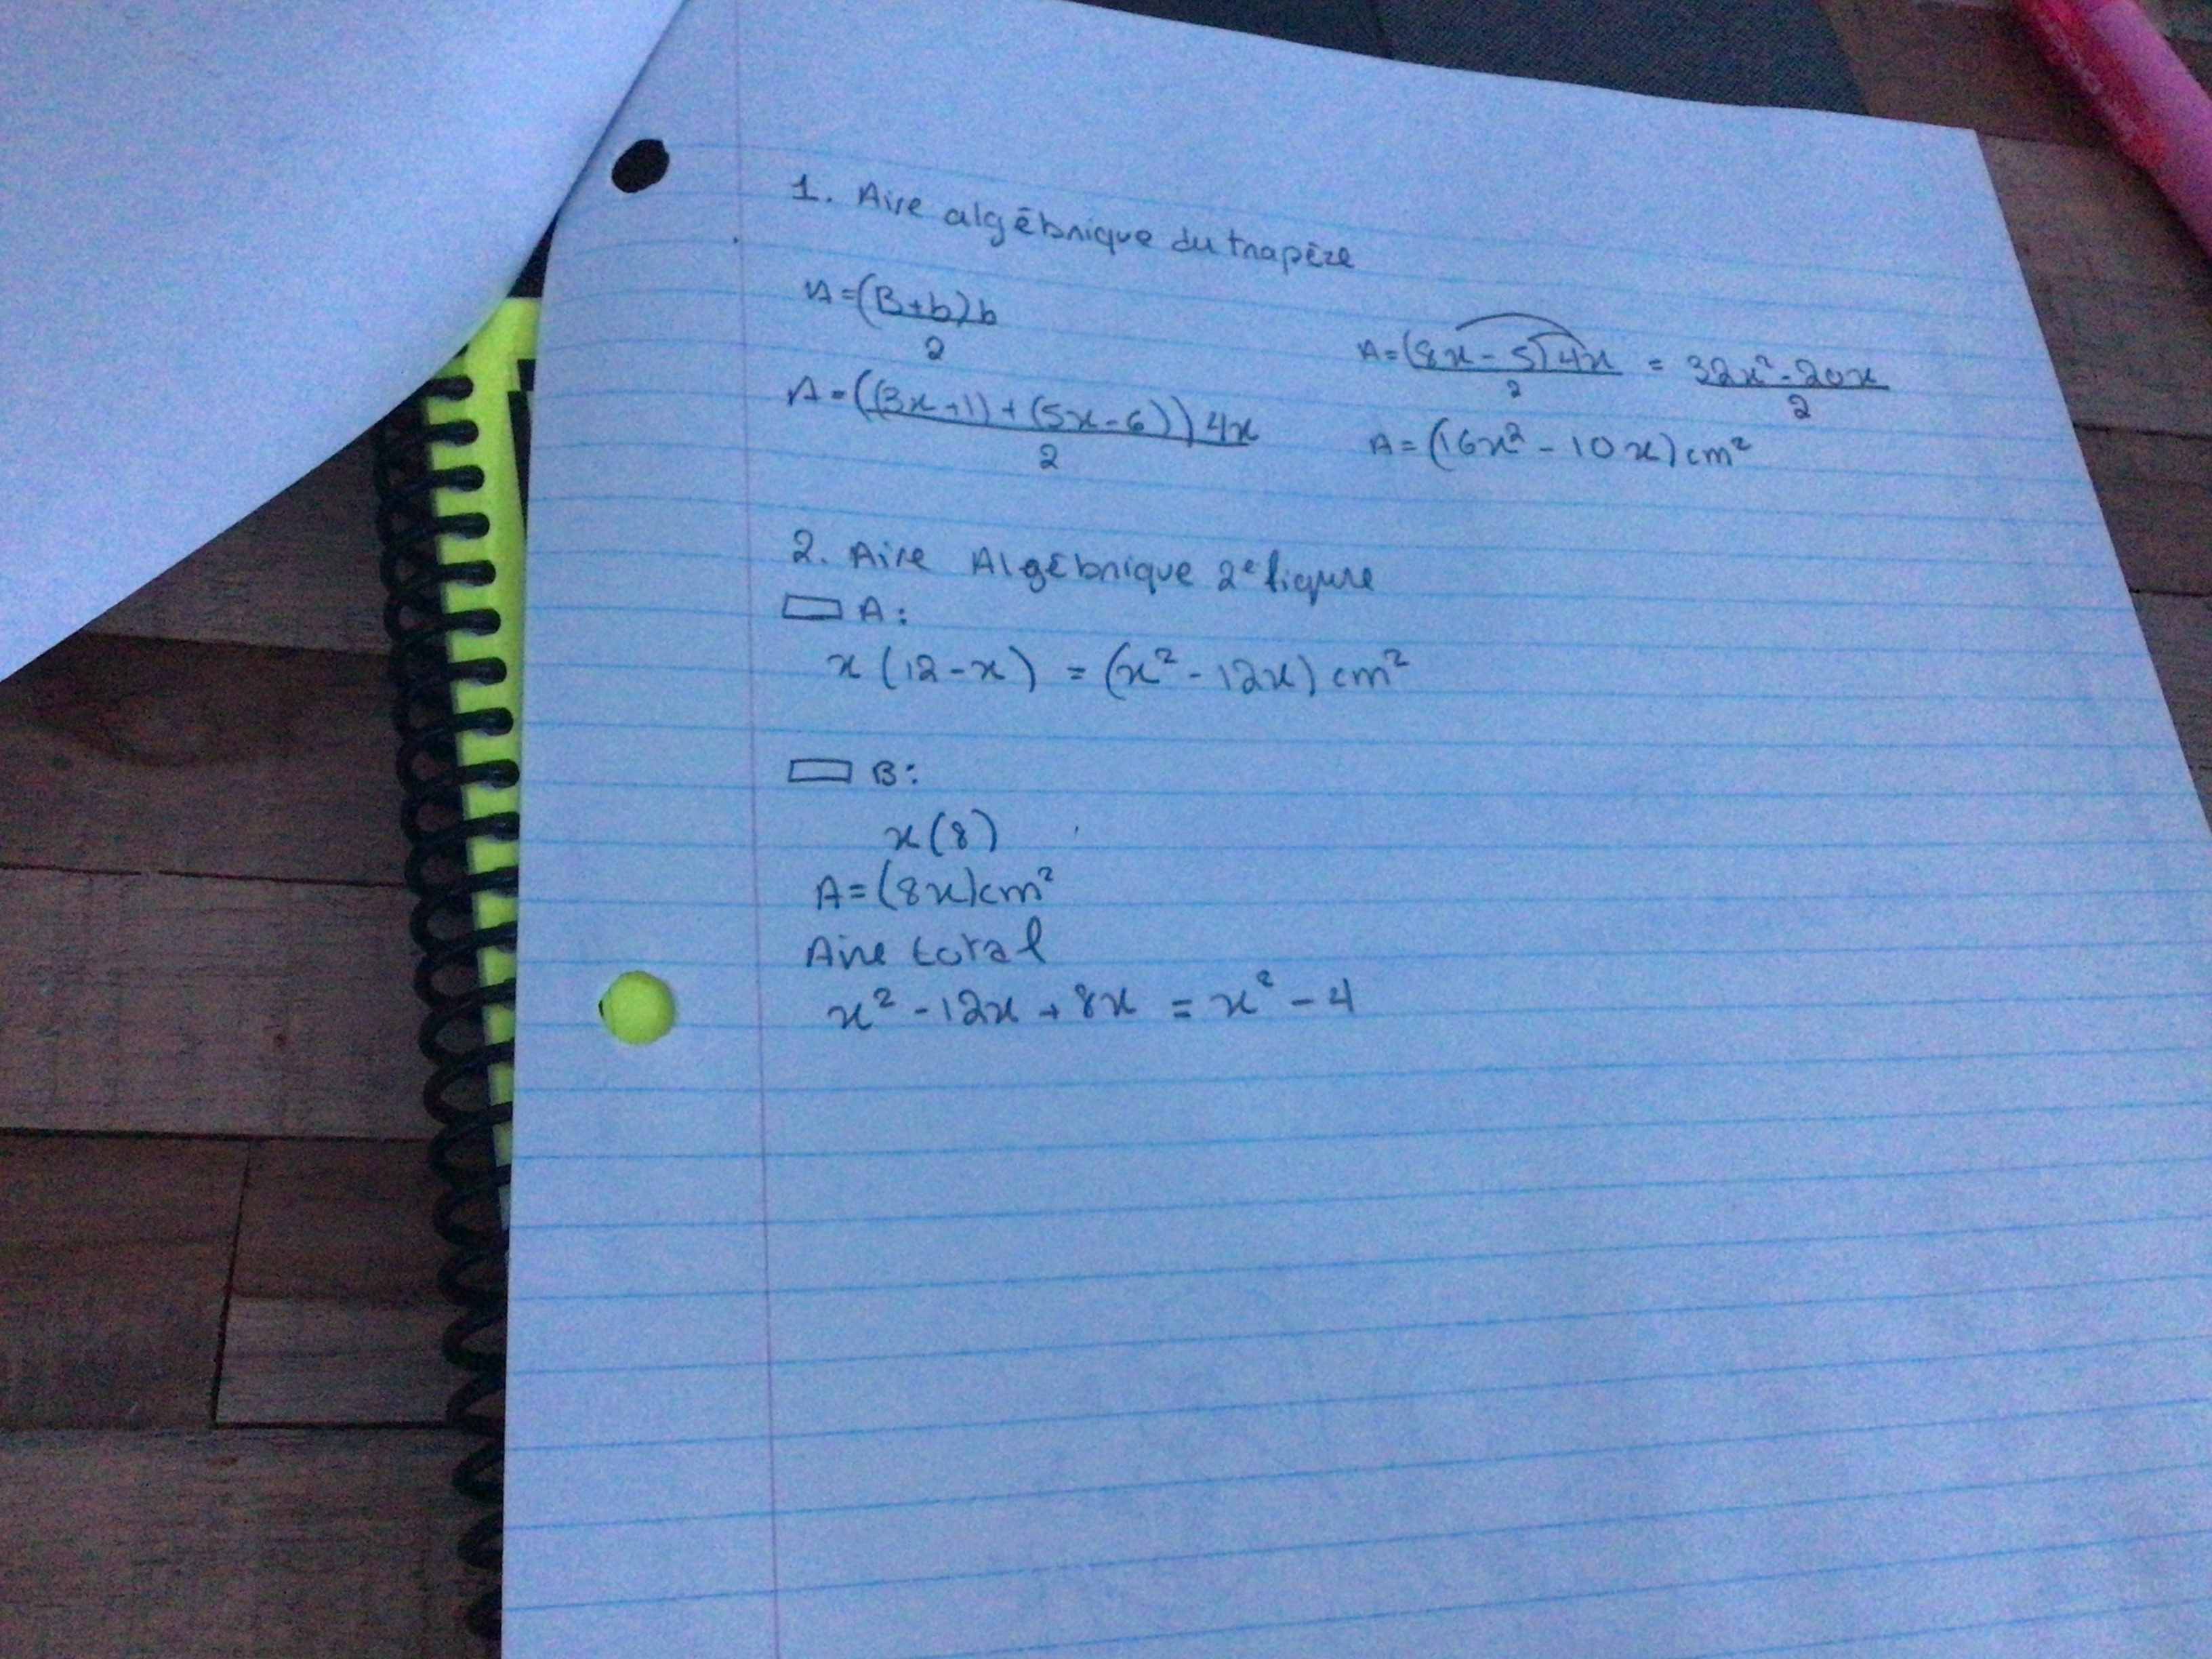 1. Aire algébrique du trapèze
A = (B+b)b
2
A = ((3x+1) + (5x-6)) 4x
2
A = (8x - 5) 4x = 32x² - 20x
2 2
A = (16x² - 10x) cm²
2. Aire Algébrique 2e figure
A:
x (12-x) = (x² - 12x) cm²
B:
x(8)
A = (8x) cm²
Aire total
x² - 12x + 8x = x² - 4